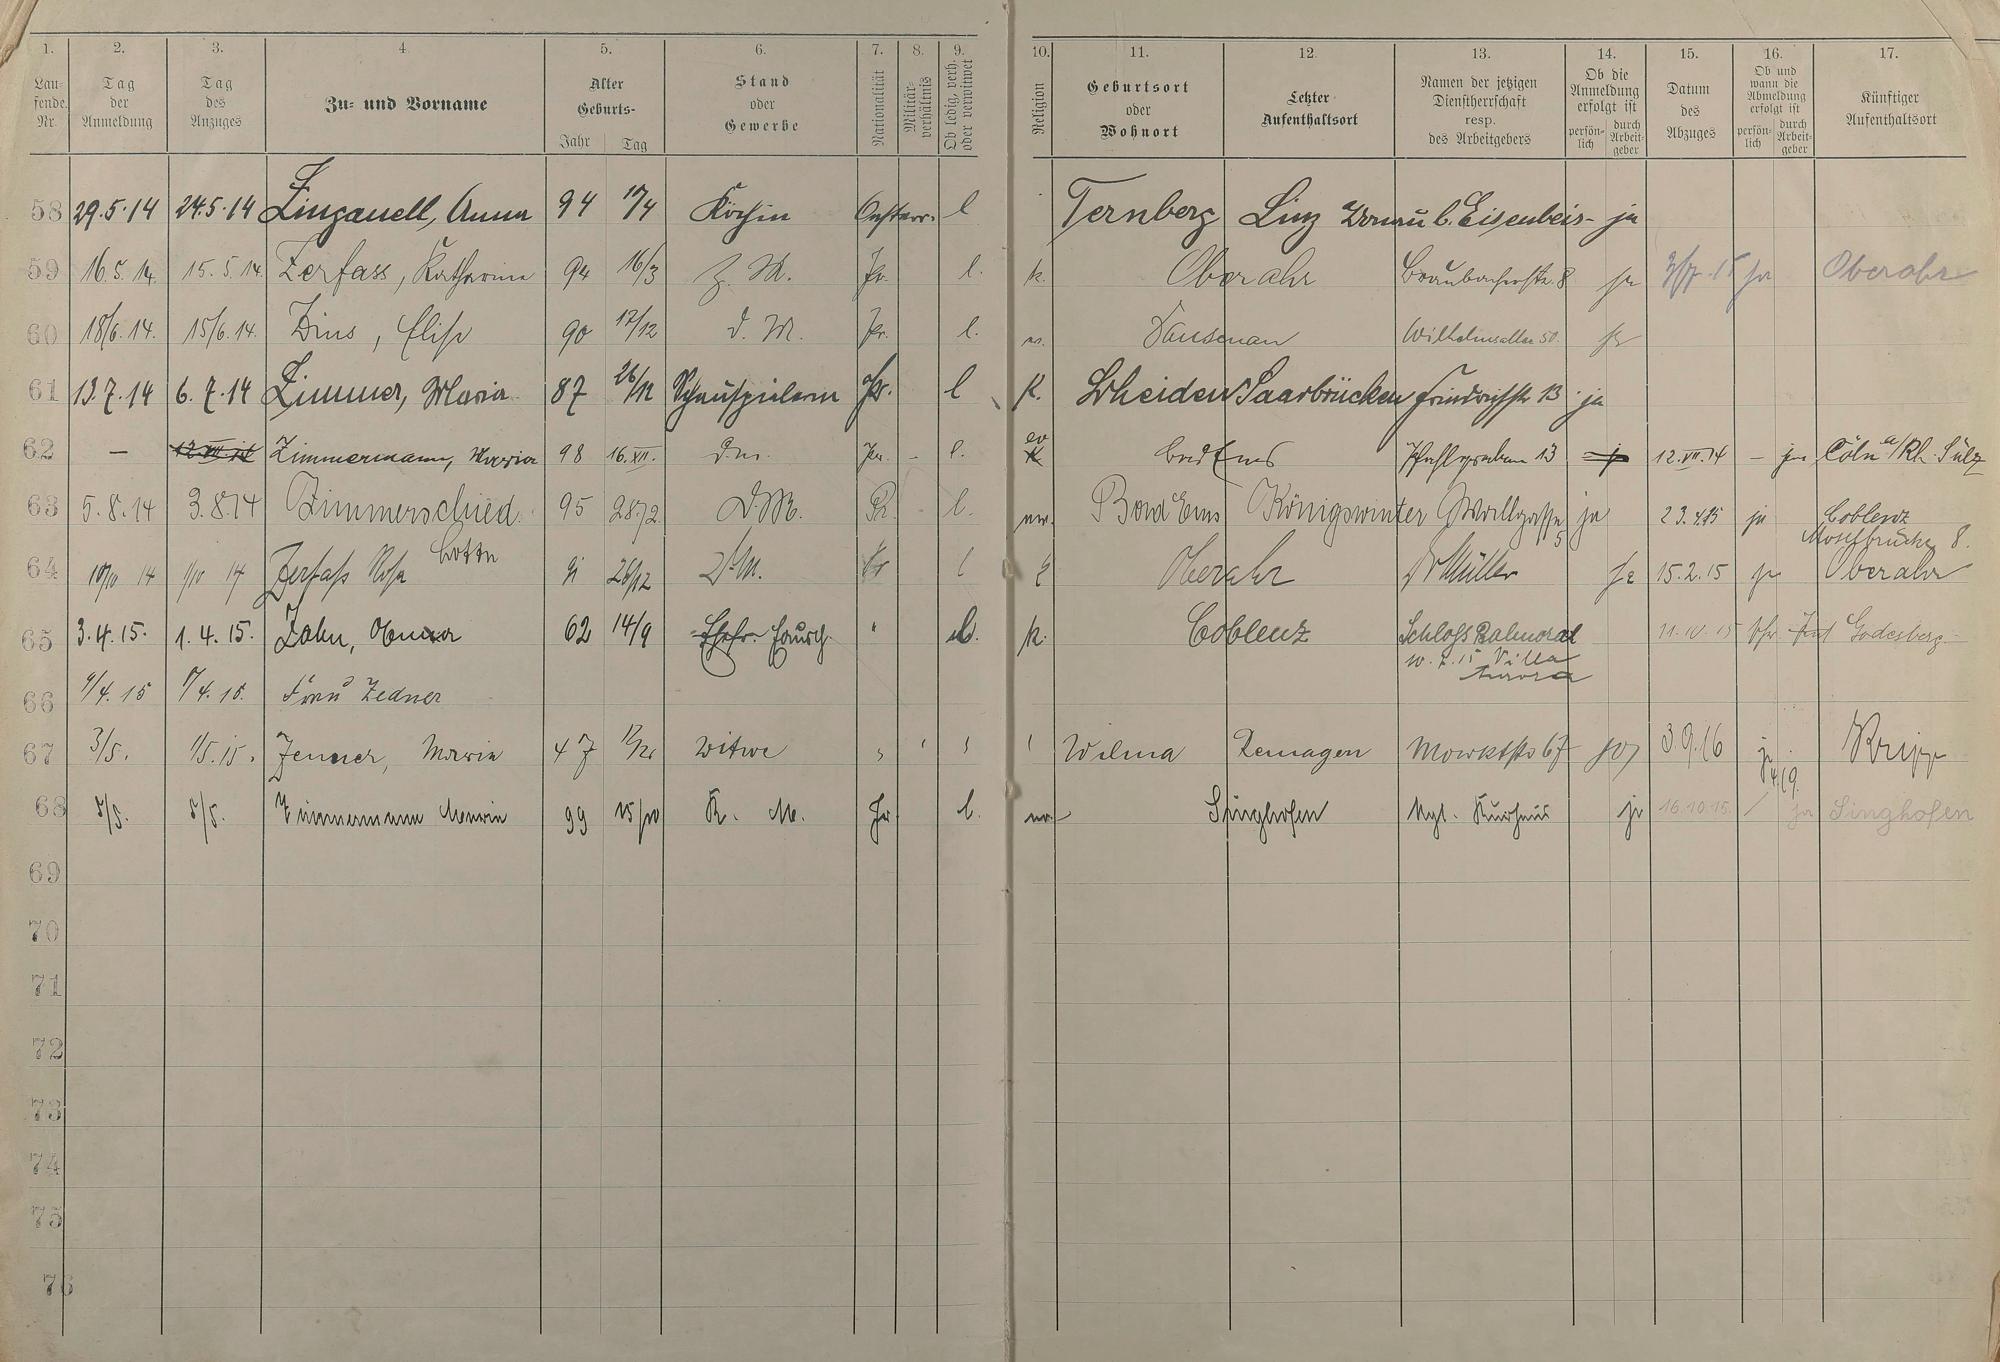 1. 2. 3. 4. 5. 6. 7. 8. 9. 10. 11. 12. 13. 14. 15. 16. 17.
Lau-
fende
Nr.
Tag
der
Anmeldung
Tag
des
Anzuges
Zu- und Vorname
Alter
Geburts-
Jahr Tag
Stand
oder
Gewerbe
Nationalität
Militär-
verhältnis
Ob ledig, verh.
oder verwitwet
Religion
Geburtsort
oder
Wohnort
Letzter
Aufenthaltsort
Namen der jetzigen
Dienstherrschaft
resp.
des Arbeitgebers
Ob die
Anmeldung
erfolgt ist
persön-
lich
durch
Arbeit-
geber
Datum
des
Abzuges
Ob und
wann die
Abmeldung
erfolgt ist
persön-
lich
durch
Arbeit-
geber
Künftiger
Aufenthaltsort
58 29.5.14 24.5.14 Linganell, Anna 94 17/4 Köchin Oesterr. l Ternberg Linz Donau b. Eisenbeis- ja
59 16.5.14. 15.5.14. Zerfass, Katharina 94 16/3 Z. M. Pr. l. k. Oberahr Braubacherstr. 8 ja ja Oberahr
60 18/6.14. 15/6.14. Dins, Elise 90 17/12 d. M. Pr. l. Dausenau Wilhelmsallee 50. ja
61 13.7.14 6.7.14 Zimmer, Maria 87 26/12 Schauspielerin Pr. l k. Saarbrücken Friedrichstr 13 ja
62 – 12.VII.14 Zimmermann, Maria 98 16.XII. d.m. Pr. – l. ev k Bad Ems Pfahlgraben 13 12.VII.14 – ja Cöln a/Rh. Sülz
63 5.8.14 3.8.14 Zimmerschied 95 D.M. Pr. l. Bad Ems Königswinter Wallgasse 5 ja 23.4.15 ja Coblenz
Moselbrücke 8.
64 14 14 Zerfass Rosa Lotte D.M. l Oberahr Dr Müller ja 15.2.15 ja Oberahr
65 3.4.15. 1.4.15. Zahn, 62 14/9 Ehefr. " k. Coblenz Schloss Balmoral
10.7.15 Villa
Aurora
11.10.15 Godesberg
66 4.15 4.15. Frau Zedner
67 3/5. 1/5.15. Zenner, Maria 47 Witwe Remagen Marktstr 67 3.9.16 Kripp
68 5/5. 5/5. Zimmermann 99 15/10 K. M. Pr l. Singhofen Kgl. Kurhaus ja 16.10.15. / ja Singhofen
69
70
71
72
73
74
75
76